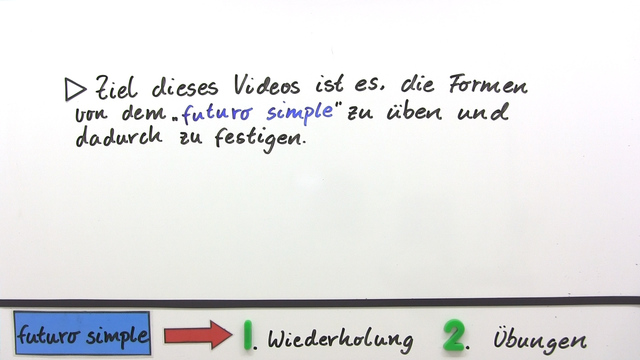 Ziel dieses Videos ist es, die Formen
von dem „futuro simple" zu üben und
dadurch zu festigen.
futuro simple 1. Wiederholung 2. Übungen